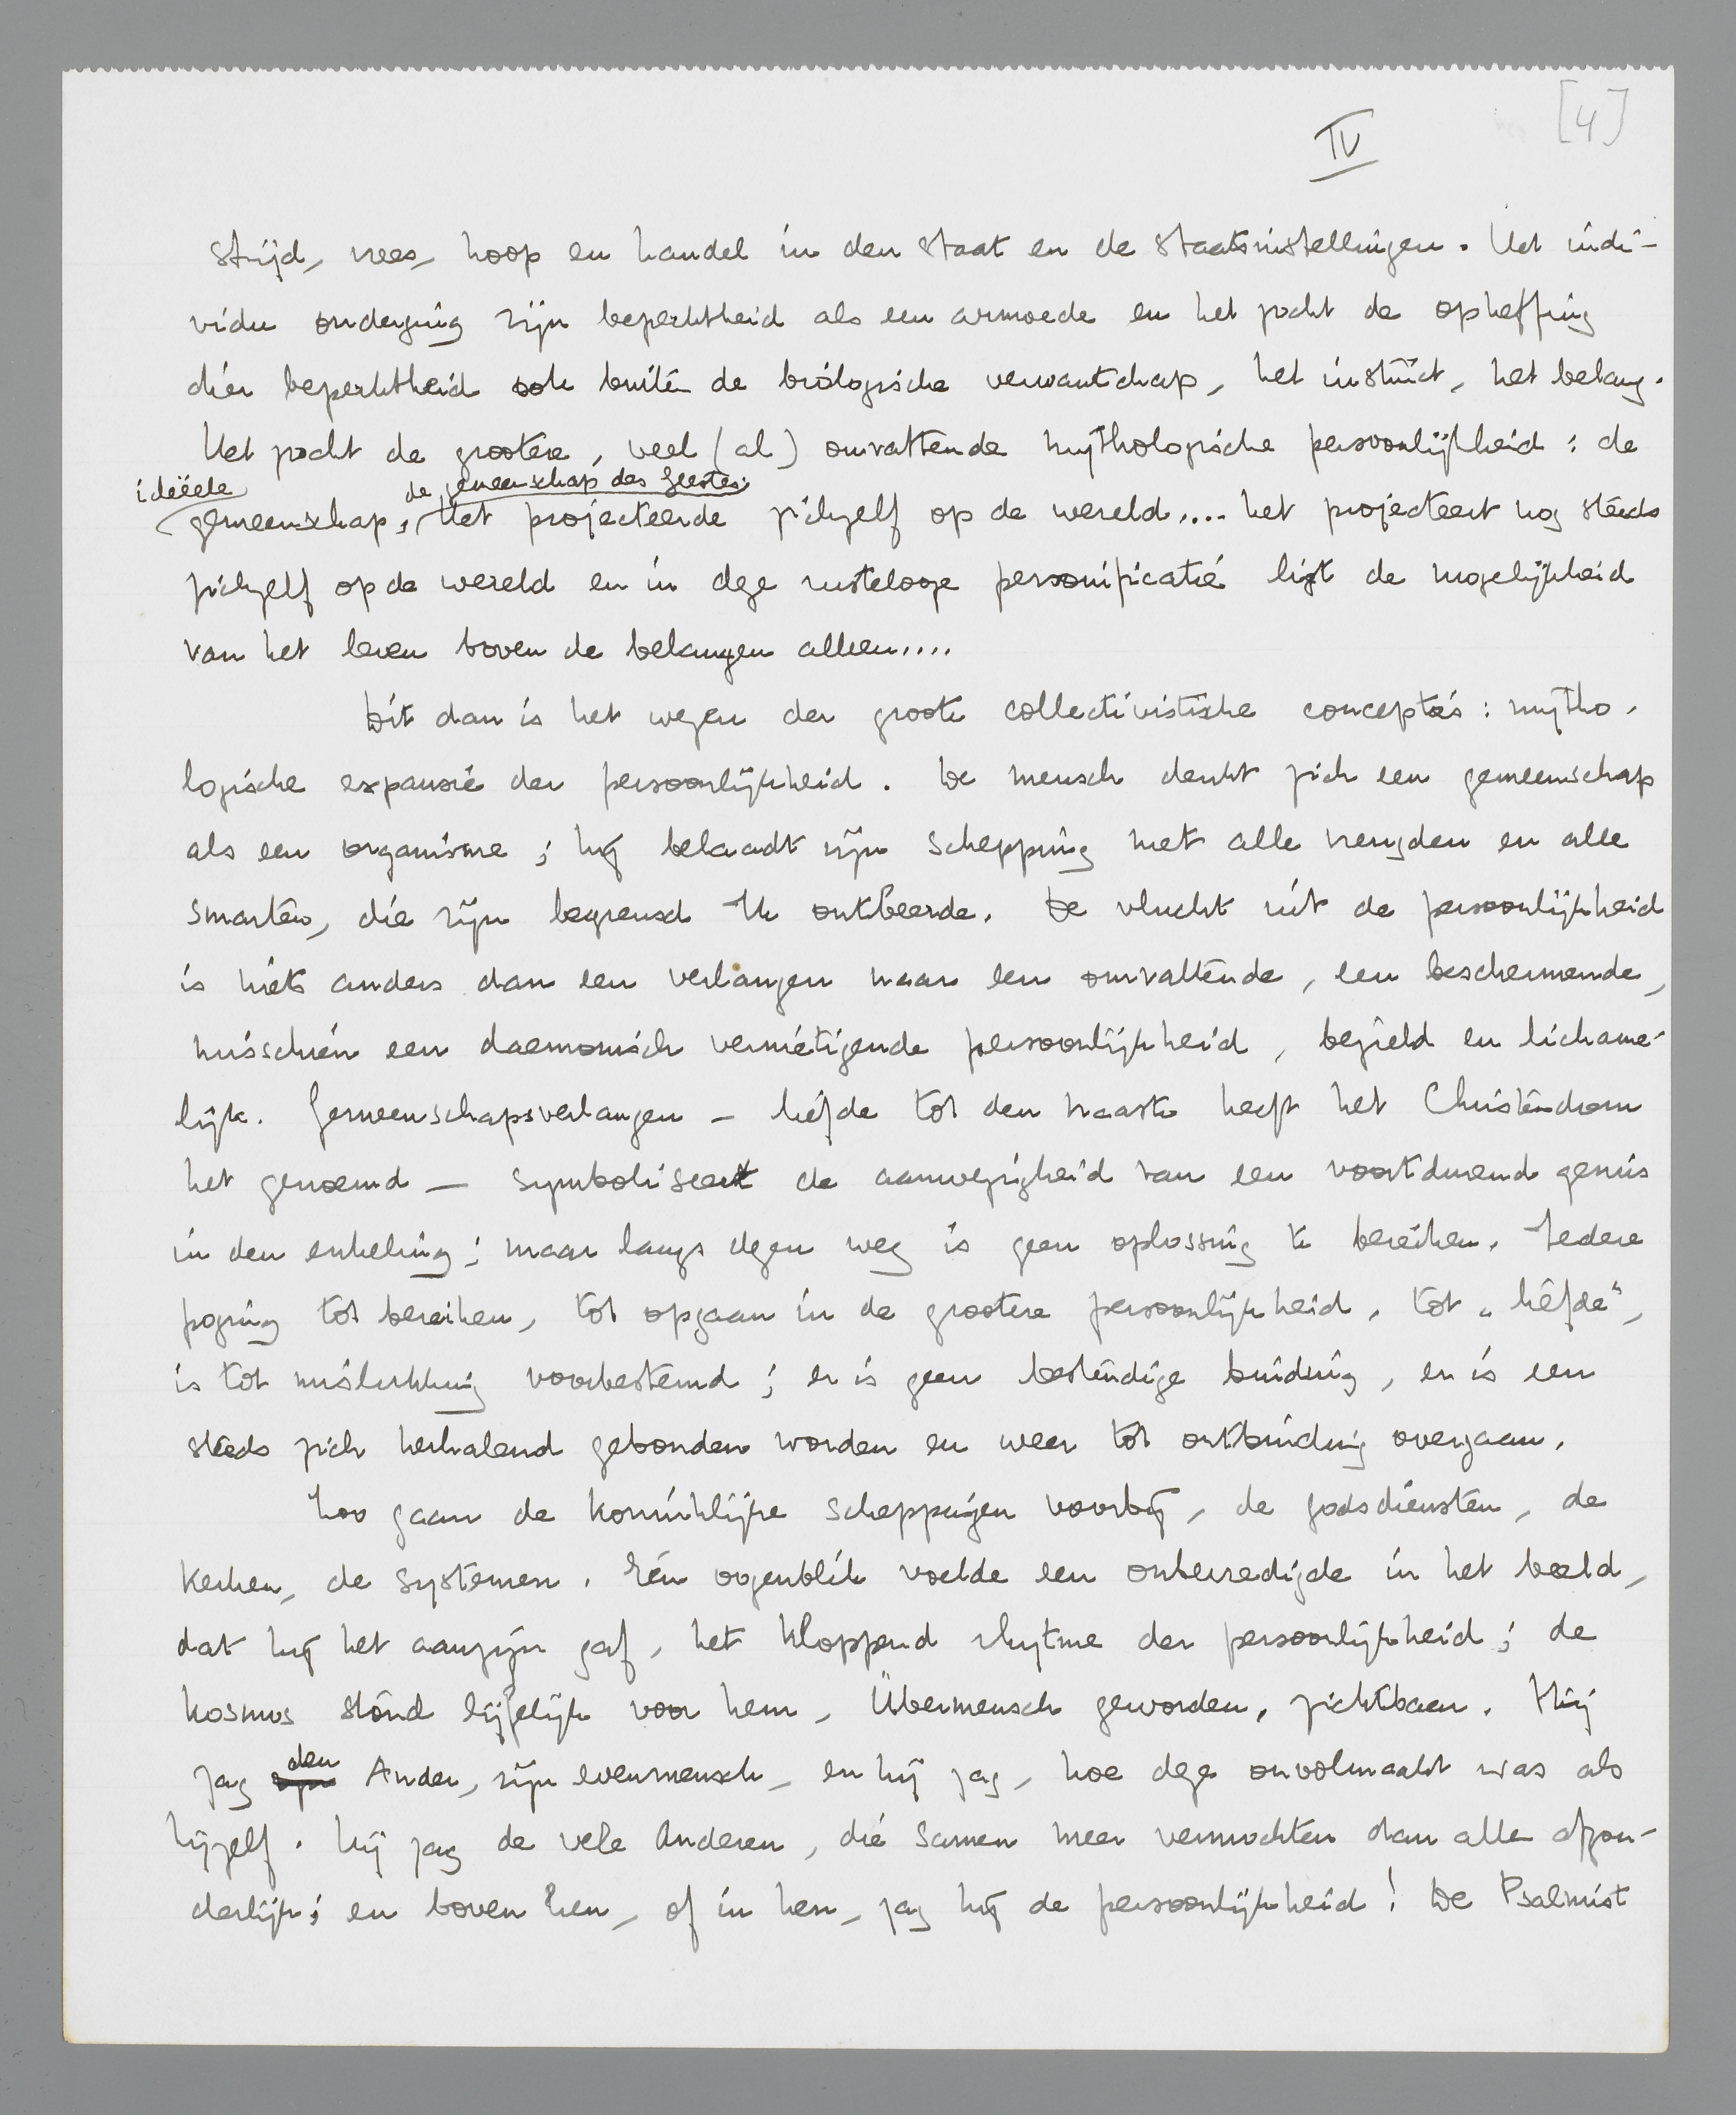 [4]
IV
strijd, vrees, hoop en handel in den staat en de staatsinstellingen. Het indi-
vidu onderging zijn beperktheid als een armoede en het zocht de opheffing
dier beperktheid ook buiten de biologische verwantschap, het instinct, het belang.
Het zocht de grootere, veel (al) omvattende mythologische persoonlijkheid: de
ideëele de gemeenschap des Geestes.
gemeenschap, Het projecteerde zichzelf op de wereld.... het projecteert nog steeds
zichzelf op de wereld en in deze rustelooze personificatie ligt de mogelijkheid
van het leven boven de belangen alleen....
Dit dan is het wezen der groote collectivistische concepties: mytho-
logische expansie der persoonlijkheid. De mensch denkt zich een gemeenschap
als een organisme; hij belaadt zijn schepping met alle vreugden en alle
smarten, die zijn begrensd Ik ontbeerde. De vlucht uit de persoonlijkheid
is niets anders dan een verlangen naar een omvattende, een beschermende,
misschien een daemonisch vernietigende persoonlijkheid, bezield en lichame-
lijk. Gemeenschapsverlangen – liefde tot den naaste heeft het Christendom
het genoemd – symboliseert de aanwezigheid van een voortdurend gemis
in den enkeling; maar langs dezen weg is geen oplossing te bereiken. Iedere
poging tot bereiken, tot opgaan in de grootere persoonlijkheid, tot „liefde",
is tot mislukking voorbestemd; er is geen bestendige binding, er is een
steeds zich herhalend gebonden worden en weer tot ontbinding overgaan.
Zoo gaan de koninklijke scheppingen voorbij, de godsdiensten, de
kerken, de systemen. Eén oogenblik voelde een onbevredigde in het beeld,
dat hij het aanzijn gaf, het kloppend rhytme der persoonlijkheid; de
kosmos stond lijfelijk voor hem, Übermensch geworden, zichtbaar. Hij
den
zag zijn Ander, zijn evenmensch, en hij zag, hoe deze onvolmaakt was als
hijzelf. Hij zag de vele Anderen, die samen meer vermochten dan alle afzon-
derlijk; en boven hen, of in hen, zag hij de persoonlijkheid! De Psalmist